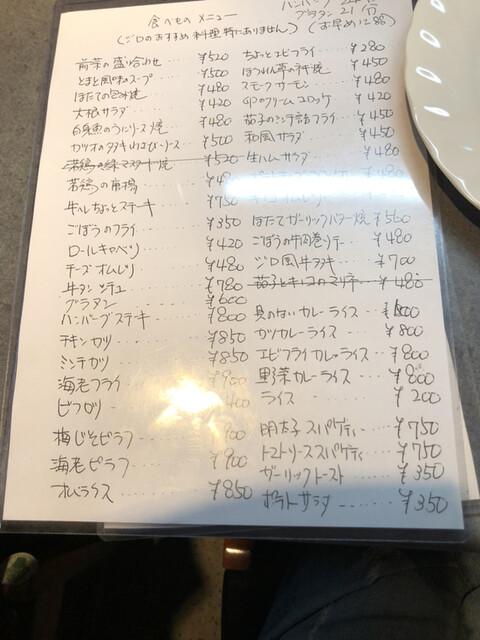 ハンバーグ
グラタン 21:00
食べもの メニュー
(ジロのおすすめ料理 特にありません) (お早めに)
前菜の盛り合わせ … ¥520
とまと風味のスープ ¥500
ほたての 焼 ¥480
大根サラダ ¥420
白身魚のうにソース焼 ¥480
カツオのタタキわさびソース ¥500
若鶏の マスタード焼 ¥520
若鶏の唐揚 ¥48
牛ヘレちょっとステーキ ¥750
ごぼうのフライ ¥350
ロールキャベツ ¥420
チーズオムレツ ¥480
牛タンシチュー ¥780
グラタン ¥600
ハンバーグステキ ¥800
チキンカツ ¥850
ミンチカツ ¥850
海老フライ ¥900
ビフカツ 400
梅じそピラフ 900
海老ピラフ ¥900
オムライス ¥850
ちょっとエビフライ ¥280
¥450
スモークサーモン ¥480
のクリームコロッケ ¥420
茄子のミンチ詰フライ ¥450
和風サラダ ¥450
生ハムサラダ ¥480
¥480
ほたてガーリックバター焼 ¥560
ごぼうの牛肉巻ソテー ¥480
ジロ風牛タタキ ¥700
茄子とキノコのマリネ ¥480
具のないカレーライス ¥600
カツカレーライス ¥800
エビフライカレーライス ¥800
野菜カレーライス ¥800
ライス ¥200
明太子スパゲティ ¥750
トマトソーススパゲティ ¥750
ガーリックトースト ¥350
ポテトサラダ ¥350